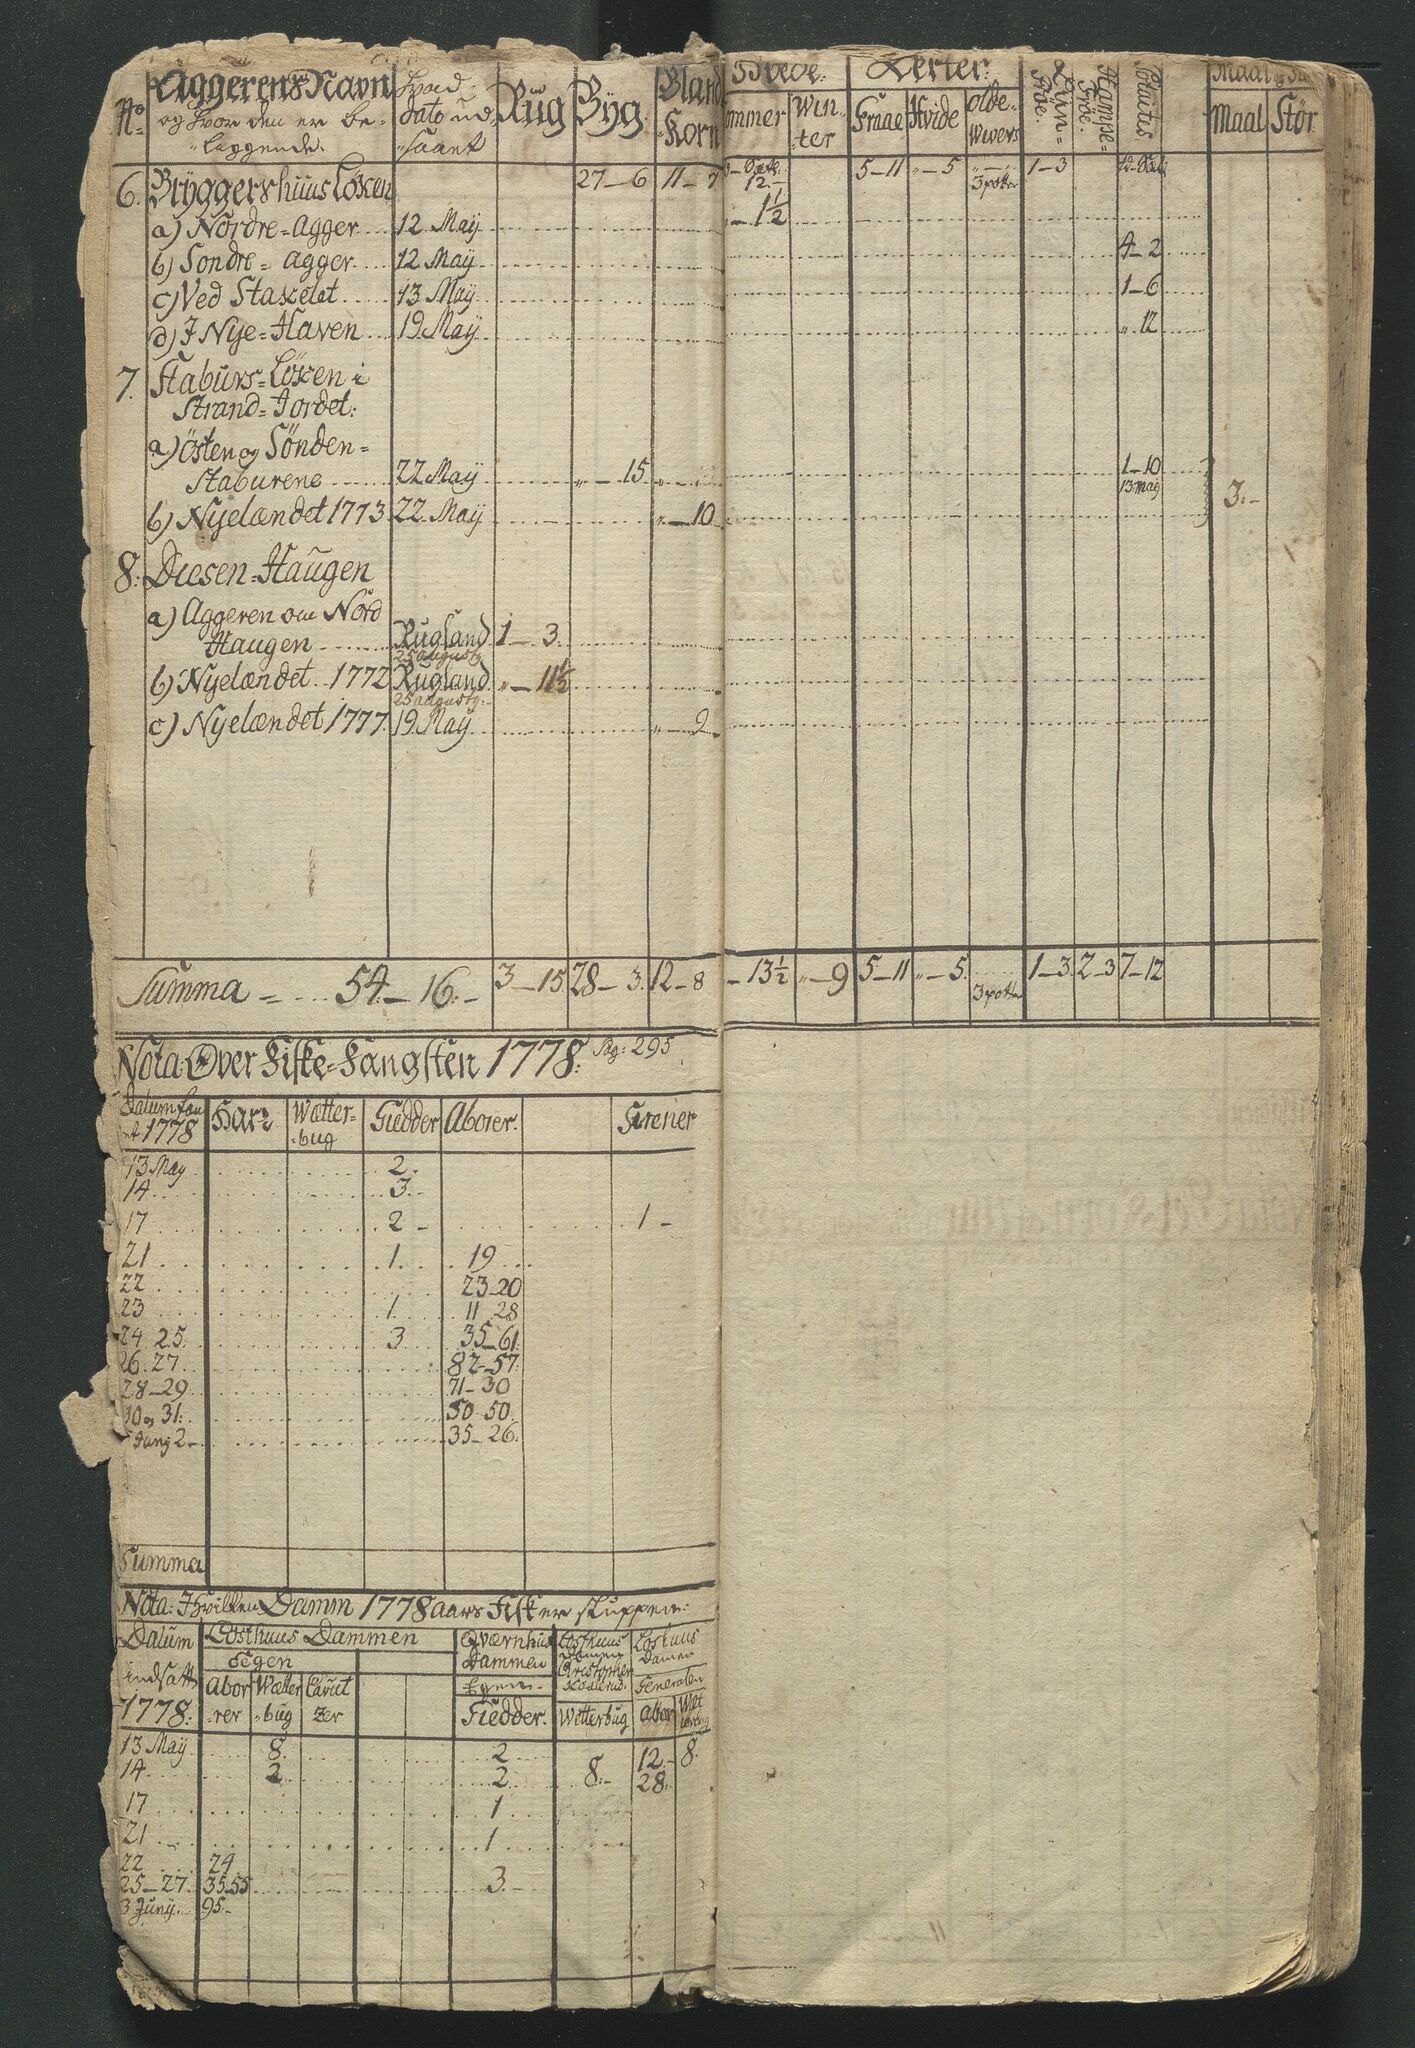 No. Aggerens Navn og hvor den er be- liggende. Hvad dato ud- saaet Rug Byg. Bland Korn Hvede: mmer Win- ter Erter: Graae Hvide olde- Wivers Lin- Hampe- Potates. Maal Maal Stör
6. Bryggerhuus Löken 27-6 11-7 12.- 5-11 „-5 3 potter 1-3
a) Nordre=Agger 12 Maÿ 1½
b) Sondre=agger 12 Maÿ 4-2
c) Ved Stakelet 13 Maÿ 1-6
d) I Nye=Haven 19 Maÿ „12
7. Staburs=Löken i
Strand=Jordet:
a) Östen og Sönden=
Staburene 22 Maÿ „-15 1-10
13 Maÿ
b) Nyelændet 1773. 22. Maÿ „-10 3.-
8. Diesen=Haugen
a) Aggeren om Nord
Haugen Rugland 1-3.
25 augusty
b) Nyelændet 1772 Rugland „-11½
25 augusty
c) Nyelændet 1777. 19 Maÿ „-9
Summa = 54.-16.- 3-15 28-3. 12-8 -13½ „-9 5-11 „-5. 3 potter 1-3. 2-3 7-12
Nota. Over Fiske=Fangsten 1778. Pag: 295
Datum 1778 Har: Wætter- bug Giedder Aborer. Sirener
13 May 2.
14 3.
17 2- 1-
21 1. 19
22 23-20
23 1. 11 28
24 25. 3 35-61.
26. 27. 82-57.
28-29 71-30
30 og 31. 50 50.
2- 35-26.
Summa
Nota: I hvilken Damm 1778 aars Fisker sluppen:
Datum indsatt 1778. Losthuus Dammen Segen Abor- rer Wætter bug Carut zer Qværnhus Dammen Egen- Giedder. Loshuus Damen Cristopher Wetterbug Loshuus Damen Generalen Abor
13 May 8. 2 12.- 8.
14 2 2 8.- 28.
17 1
21 1
22 24.
25-27. 35-55 3.-
3 Junÿ. 95.-